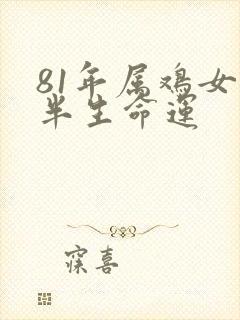 81年属鸡女
半生命运
寐喜